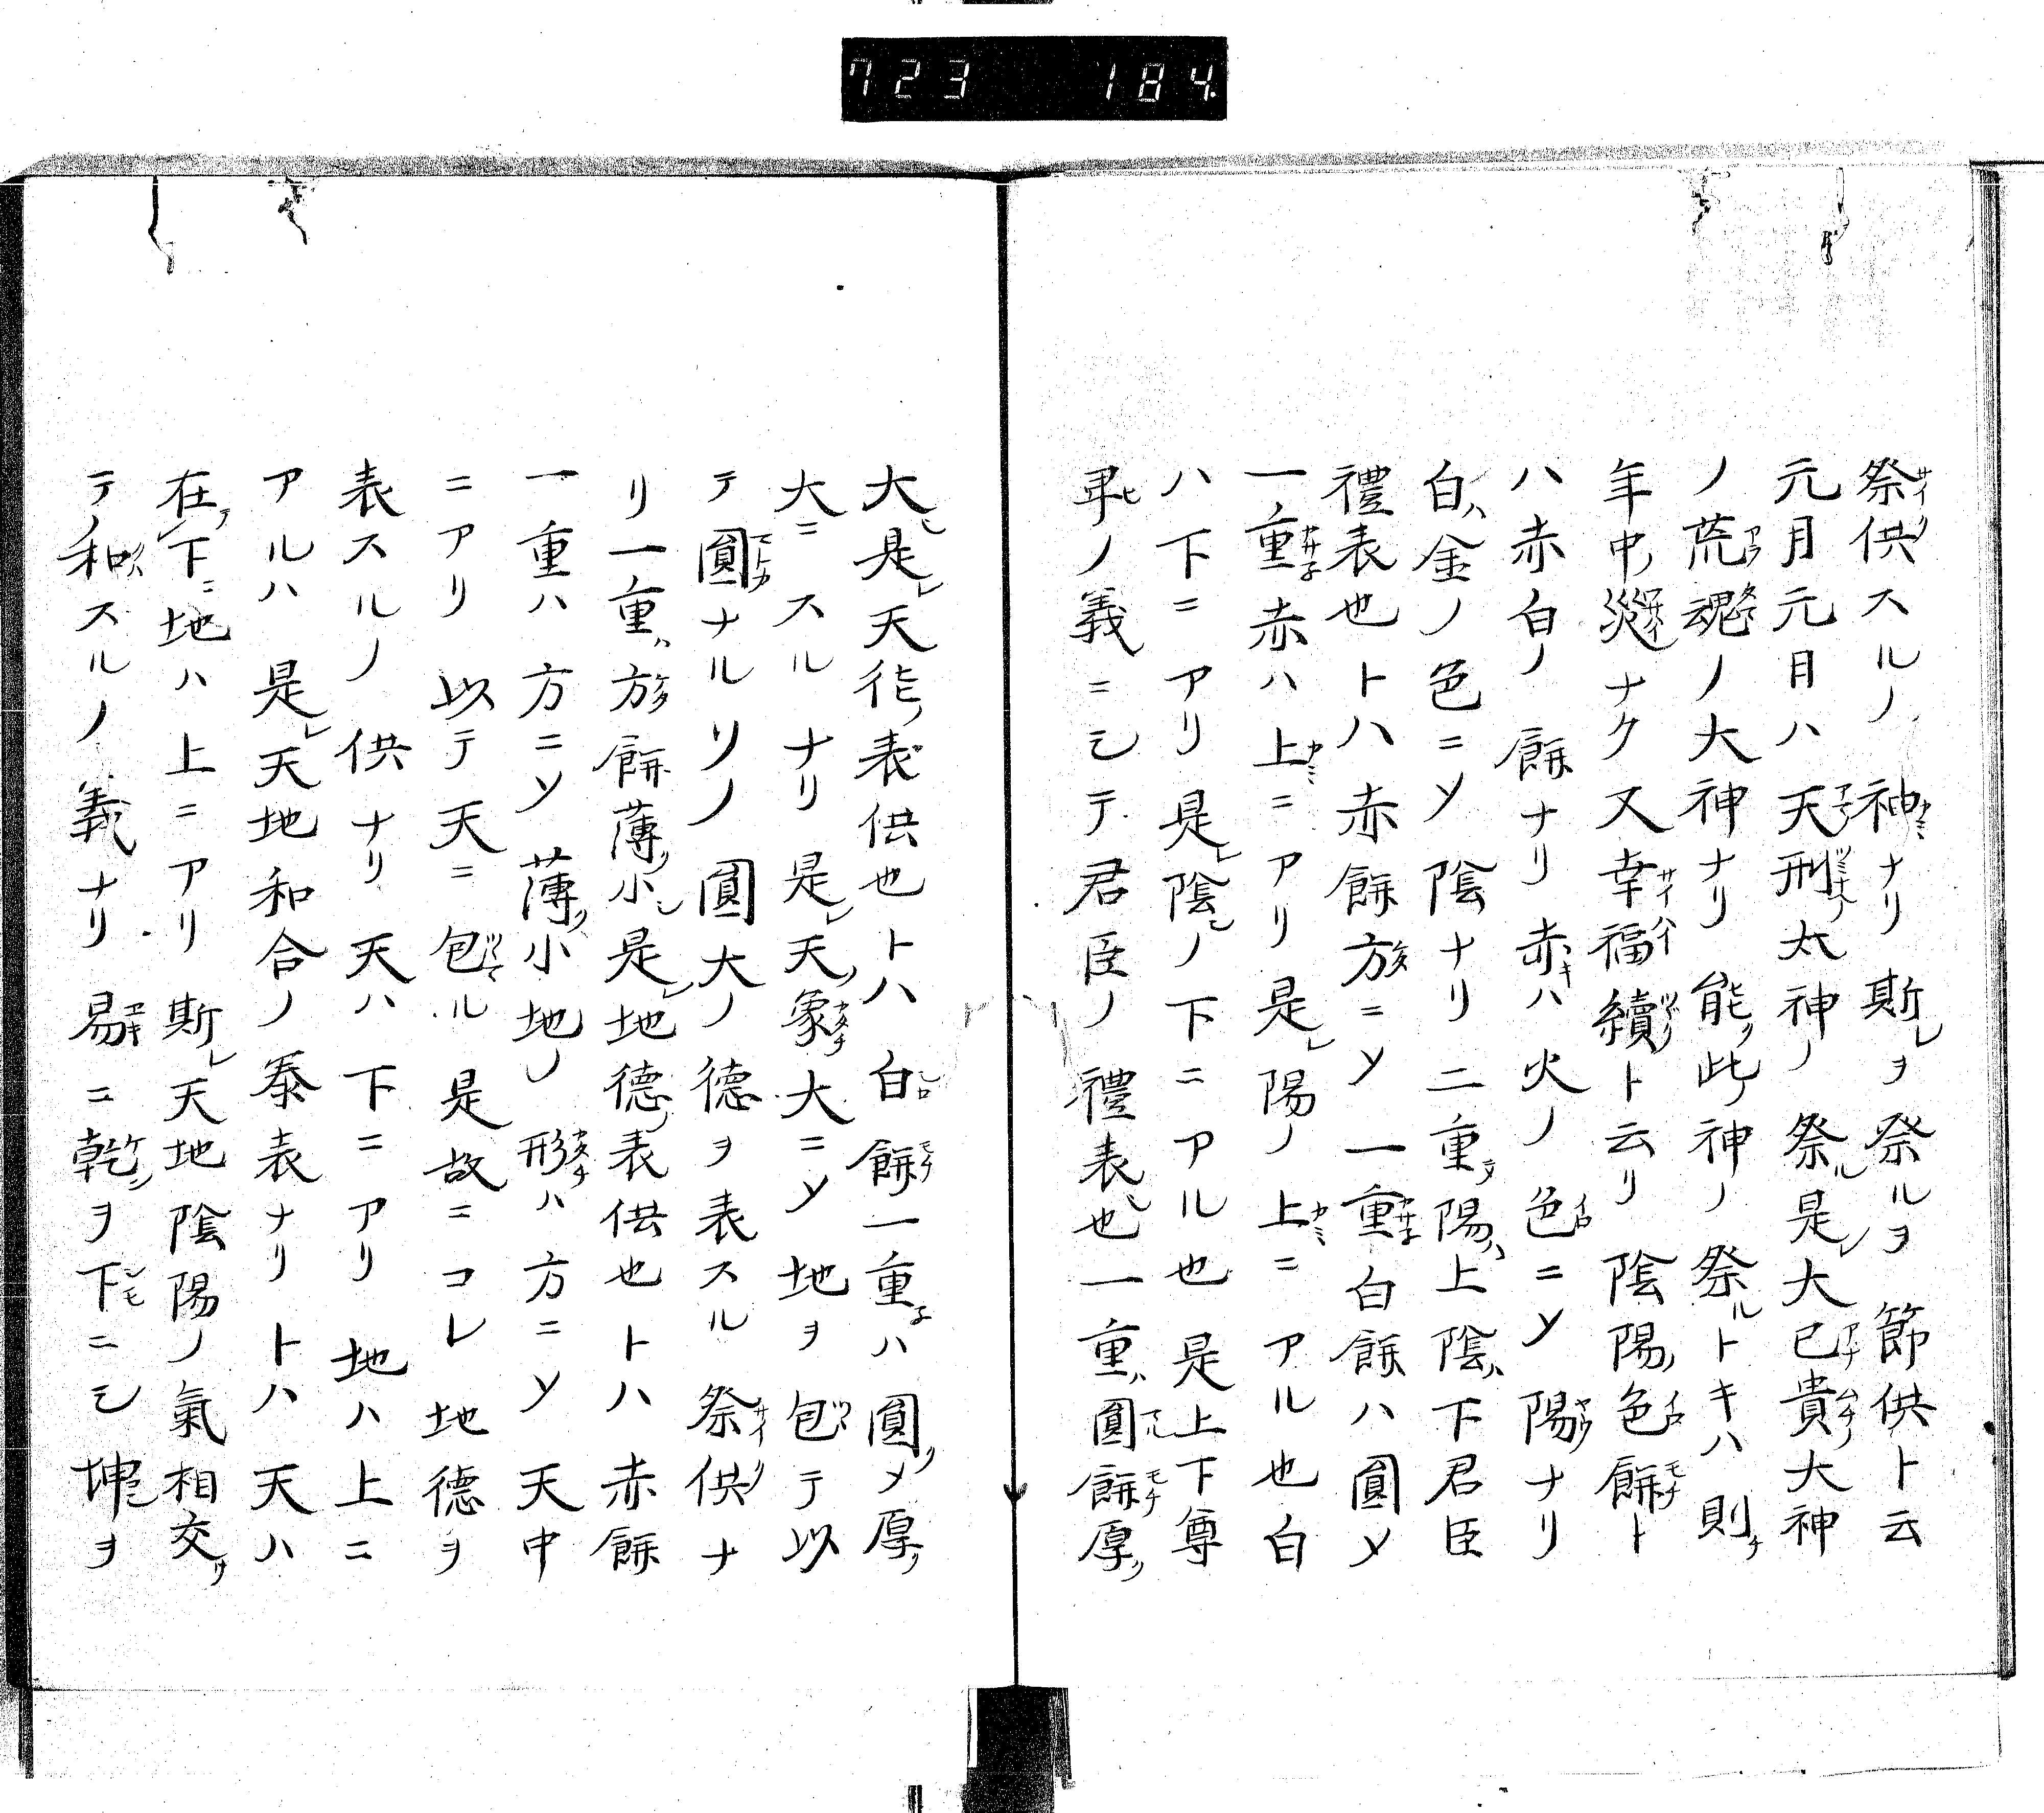 723 184
祭供スルノ神ナリ斯レヲ祭ルヲ節供ト云
元月元日ハ天刑太神ノ祭ル是レ大已貴大神
ノ荒魂ノ大神ナリ能ク此神ノ祭ルトキハ則チ
年中災ナク又幸福續ト云リ陰陽ノ色餅ト
ハ赤白ノ餅ナリ赤キハ火ノ色ニソ陽ナリ
白ハ金ノ色ニソ陰ナリ二重テ陽ハ上陰ハ下君臣
禮表也トハ赤餅方ニソ一重白餅ハ圓メ
一重赤ハ上ニアリ是レ陽ノ上ニアル也白
ハ下ニアリ是レ陰ノ下ニアル也是上下尊
卑ノ義ニシテ君臣ノ禮表也一重ハ圓餅厚ク
大是レ天徳ノ表供也トハ白餅一重ハ圓メ厚ク
大ニスルナリ是レ天ノ象大ニソ地ヲ包テ以
テ圓ナルリノ圓大ノ德ヲ表スル祭供ナ
リ一重ハ方餅薄ク小シ是レ地德ノ表供也トハ赤餅
一重ハ方ニソ薄ク小地ノ形ハ方ニソ天中
ニアリ以テ天ニ包ル是故ニコレ地德ヲ
表スルノ供ナリ天ハ下ニアリ地ハ上ニ
アルハ是レ天地和合ノ泰表ナリトハ天ハ
在テ下ニ地ハ上ニアリ斯レ天地陰陽ノ氣相交リ
テ和スルノ義ナリ易ニ乾ヲ下ニシ坤ヲ